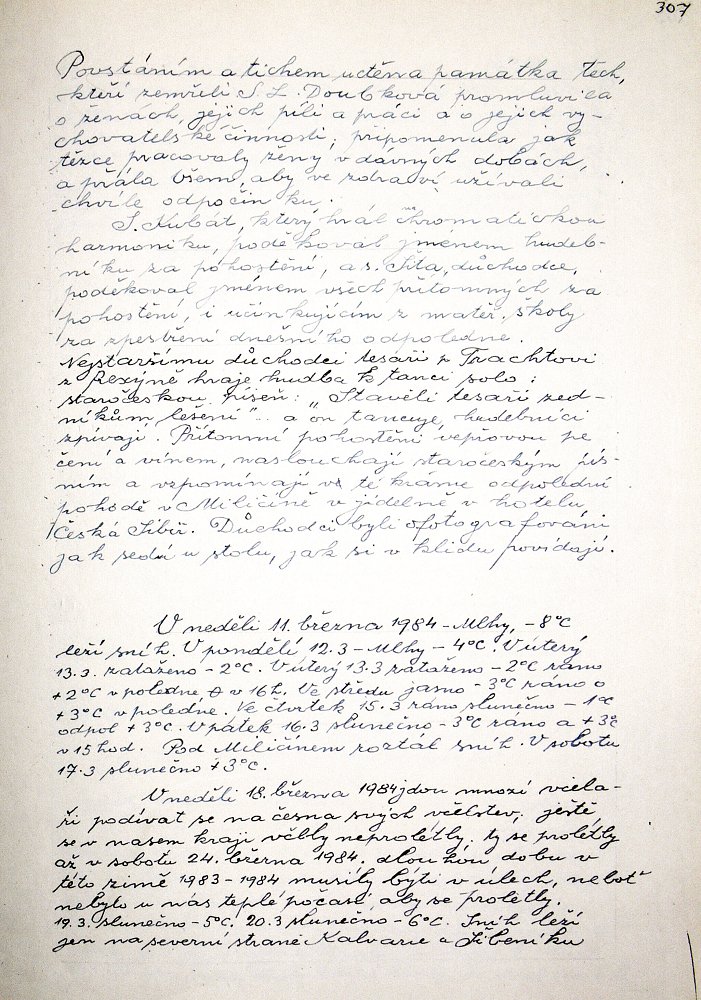 307
Povstáním a tichem uctěna památka těch,
kteří zemřeli S. L. Doubková promluvila
o ženách, jejich píli a práci a o jejich vy-
chovatelské činnosti, připomenula jak
těžce pracovaly ženy v dávných dobách,
a přála všem, aby ve zdraví užívali
chvíle odpočinku.
S. Kubát, který hrál chromatickou
harmoniku, poděkoval jménem hudeb-
níku za pohostění, a s. Síta, důchodce,
poděkoval jménem všech přítomných za
pohostění, i účinkujícím z mateř. školy
za zpestření dnešního odpoledne.
Nejstaršímu důchodci tesaři p. Trachtovi
z Rexýně hraje hudba k tanci solo:
staročeskou píseň: „Stavěli tesaři zed-
níkům lešení"... a on tancuje, hudebníci
zpívají. Přítomní pohostěni vepřovou pe
čení a vínem, naslouchají staročeským pís-
ním a vzpomínají ve té krásné odpolední
pohodě v Miličíně v jídelně v hotelu
Česká Sibiř. Důchodci byli ofotografováni
jak sedí u stolu, jak si v klidu povídají.
V neděli 11. března 1984 - Mlhy, -8°C
leží sníh. V pondělí 12.3 - Mlhy - 4°C. V úterý
13.3. zataženo - 2°C. V úterý 13.3 zataženo - 2°C ráno
+2°C v poledne, 0 v 16h. Ve středu jasno - 3°C ráno a
+3°C v poledne. Ve čtvrtek 15.3 ráno slunečno - 1°C
odpol +3°C. V pátek 16.3 slunečno - 3°C ráno a +3°C
v 15 hod. Pod Miličínem roztál sníh. V sobotu
17.3 slunečno +3°C.
V neděli 18. března 1984 jdou mnozí včela-
ři podívat se na česna svých včelstev, ještě
se v našem kraji včely neprolétly, ty se prolétly
až v sobotu 24. března 1984. dlouhou dobu v
této zimě 1983-1984 musily býti v úlech, neboť
nebylo u nás teplé počasí, aby se proletly.
19.3. slunečno - 5°C, 20.3 slunečno - 6°C. Sníh leží
jen na severní straně Kalvarie a Šibeníku